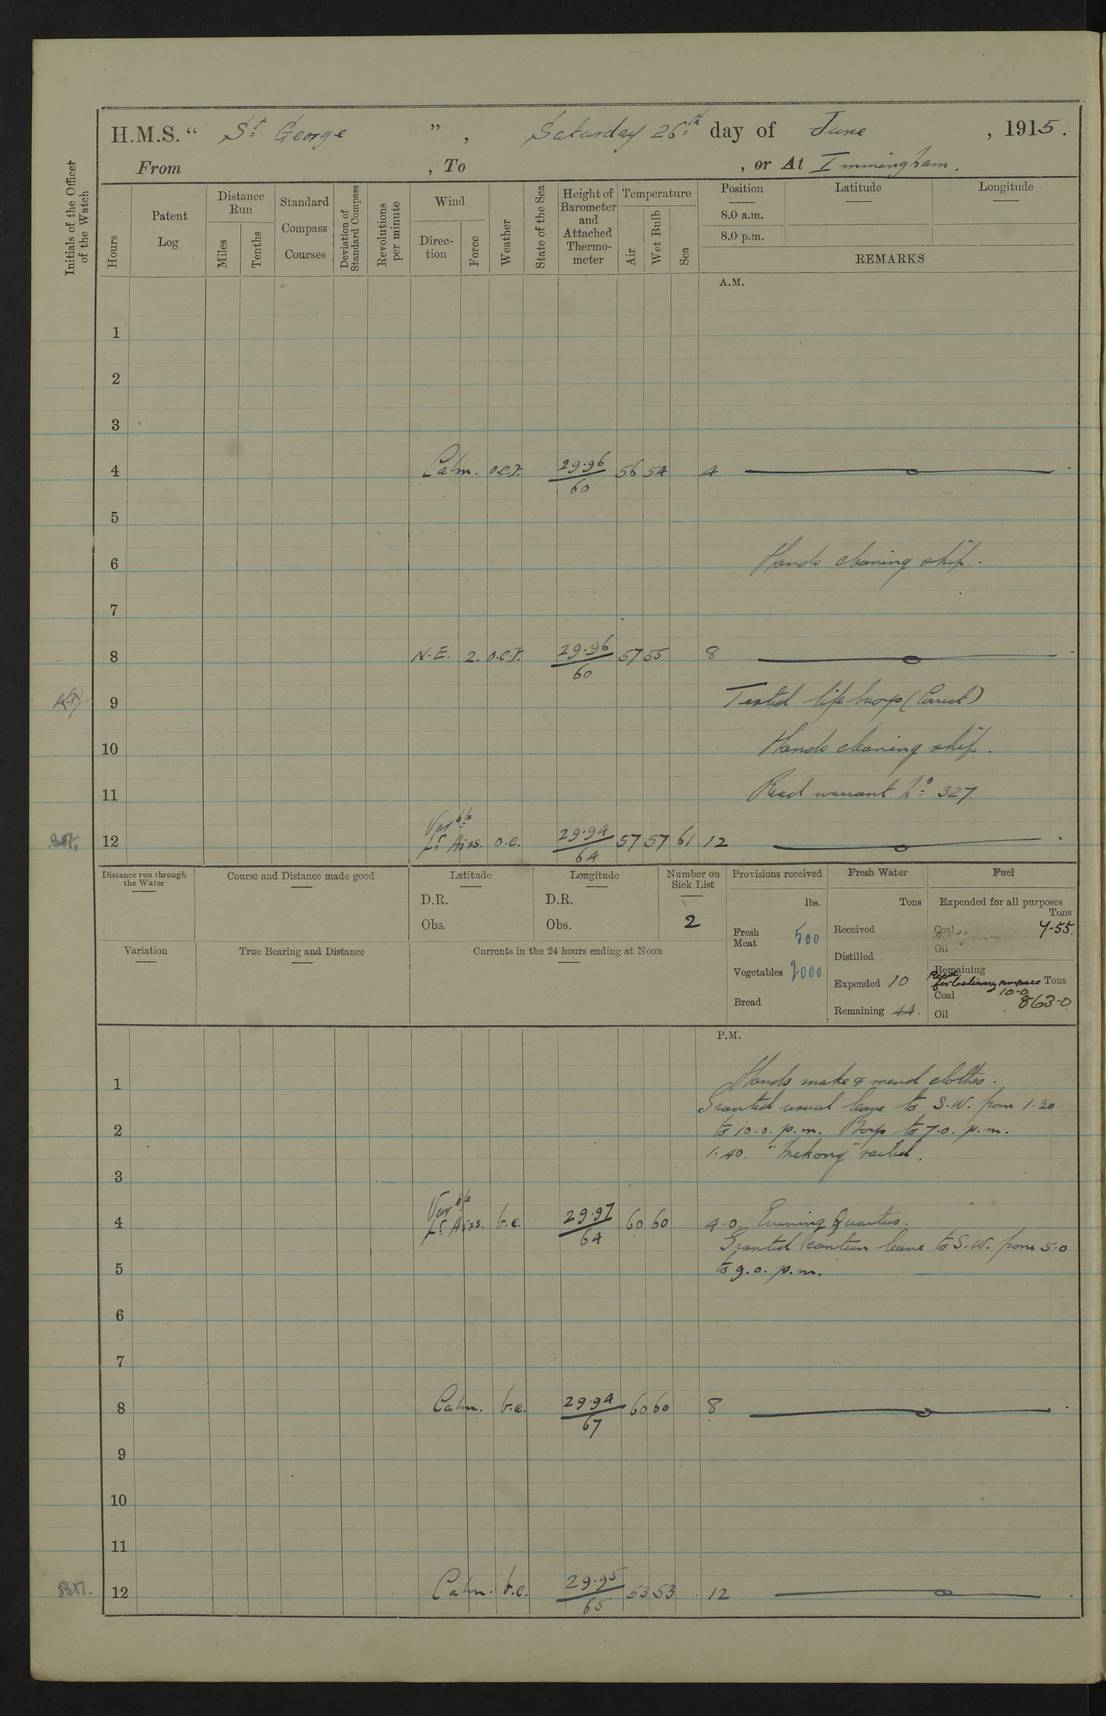 H.M.S. “ St. George ” , Saturday 26th day of June , 1915.
From , To , or At Immingham.
Initials of the Officer of the Watch
Hours
Patent Log
Distance Run
Miles
Tenths
Standard Compass Courses
Deviation of Standard Compass
Revolutions per minute
Wind
Direction
Force
Weather
State of the Sea
Height of Barometer and Attached Thermometer
Temperature
Air
Wet Bulb
Sea
Position
Latitude
Longitude
8.0 a.m.
8.0 p.m.
REMARKS
A.M.
1
2
3
4 Calm. o.c.r. 29.96/60 56 54 4
5
6 Hands cleaning ship.
7
8 N.E. 2. o.c.r. 29.96/60 57 55 8
9 Tested life buoys (Correct)
10 Hands cleaning ship.
11 Read warrant No. 327
12 Varble Lt Airs. o.c. 29.94/64 57 57 61 12
Distance run through the Water
Course and Distance made good
Latitude
D.R.
Obs.
Longitude
D.R.
Obs.
Number on Sick List
2
Provisions received
lbs.
Fresh Meat 500
Vegetables 2000
Bread
Fresh Water
Tons
Received
Distilled
Expended 10
Remaining 44.
Fuel
Expended for all purposes
Tons
Coal 4-55.
Oil
Remaining
for Culinary purposes Tons
10-0
Coal 863-0
Oil
Variation
True Bearing and Distance
Currents in the 24 hours ending at Noon
P.M.
1 Hands make & mend clothes.
Granted usual leave to S.W. from 1.30
2 to 10.0. p.m. Boys to 7.0. p.m.
1.40. "Mekong" sailed.
3
4 Varble Lt Airs. b.c. 29.97/64 60 60 4-0. Evening Quarters.
Granted canteen leave to S.W. from 5.0
5 to 9.0. p.m.
6
7
8 Calm. b.c. 29.94/67 60 60 8
9
10
11
12 Calm. b.c. 29.95/65 53 53 12